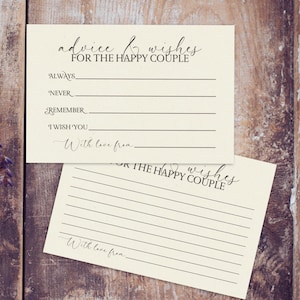 advice & wishes
FOR THE HAPPY COUPLE
ALWAYS
NEVER
REMEMBER
I WISH YOU
With love from
wishes
FOR THE HAPPY COUPLE
With love from